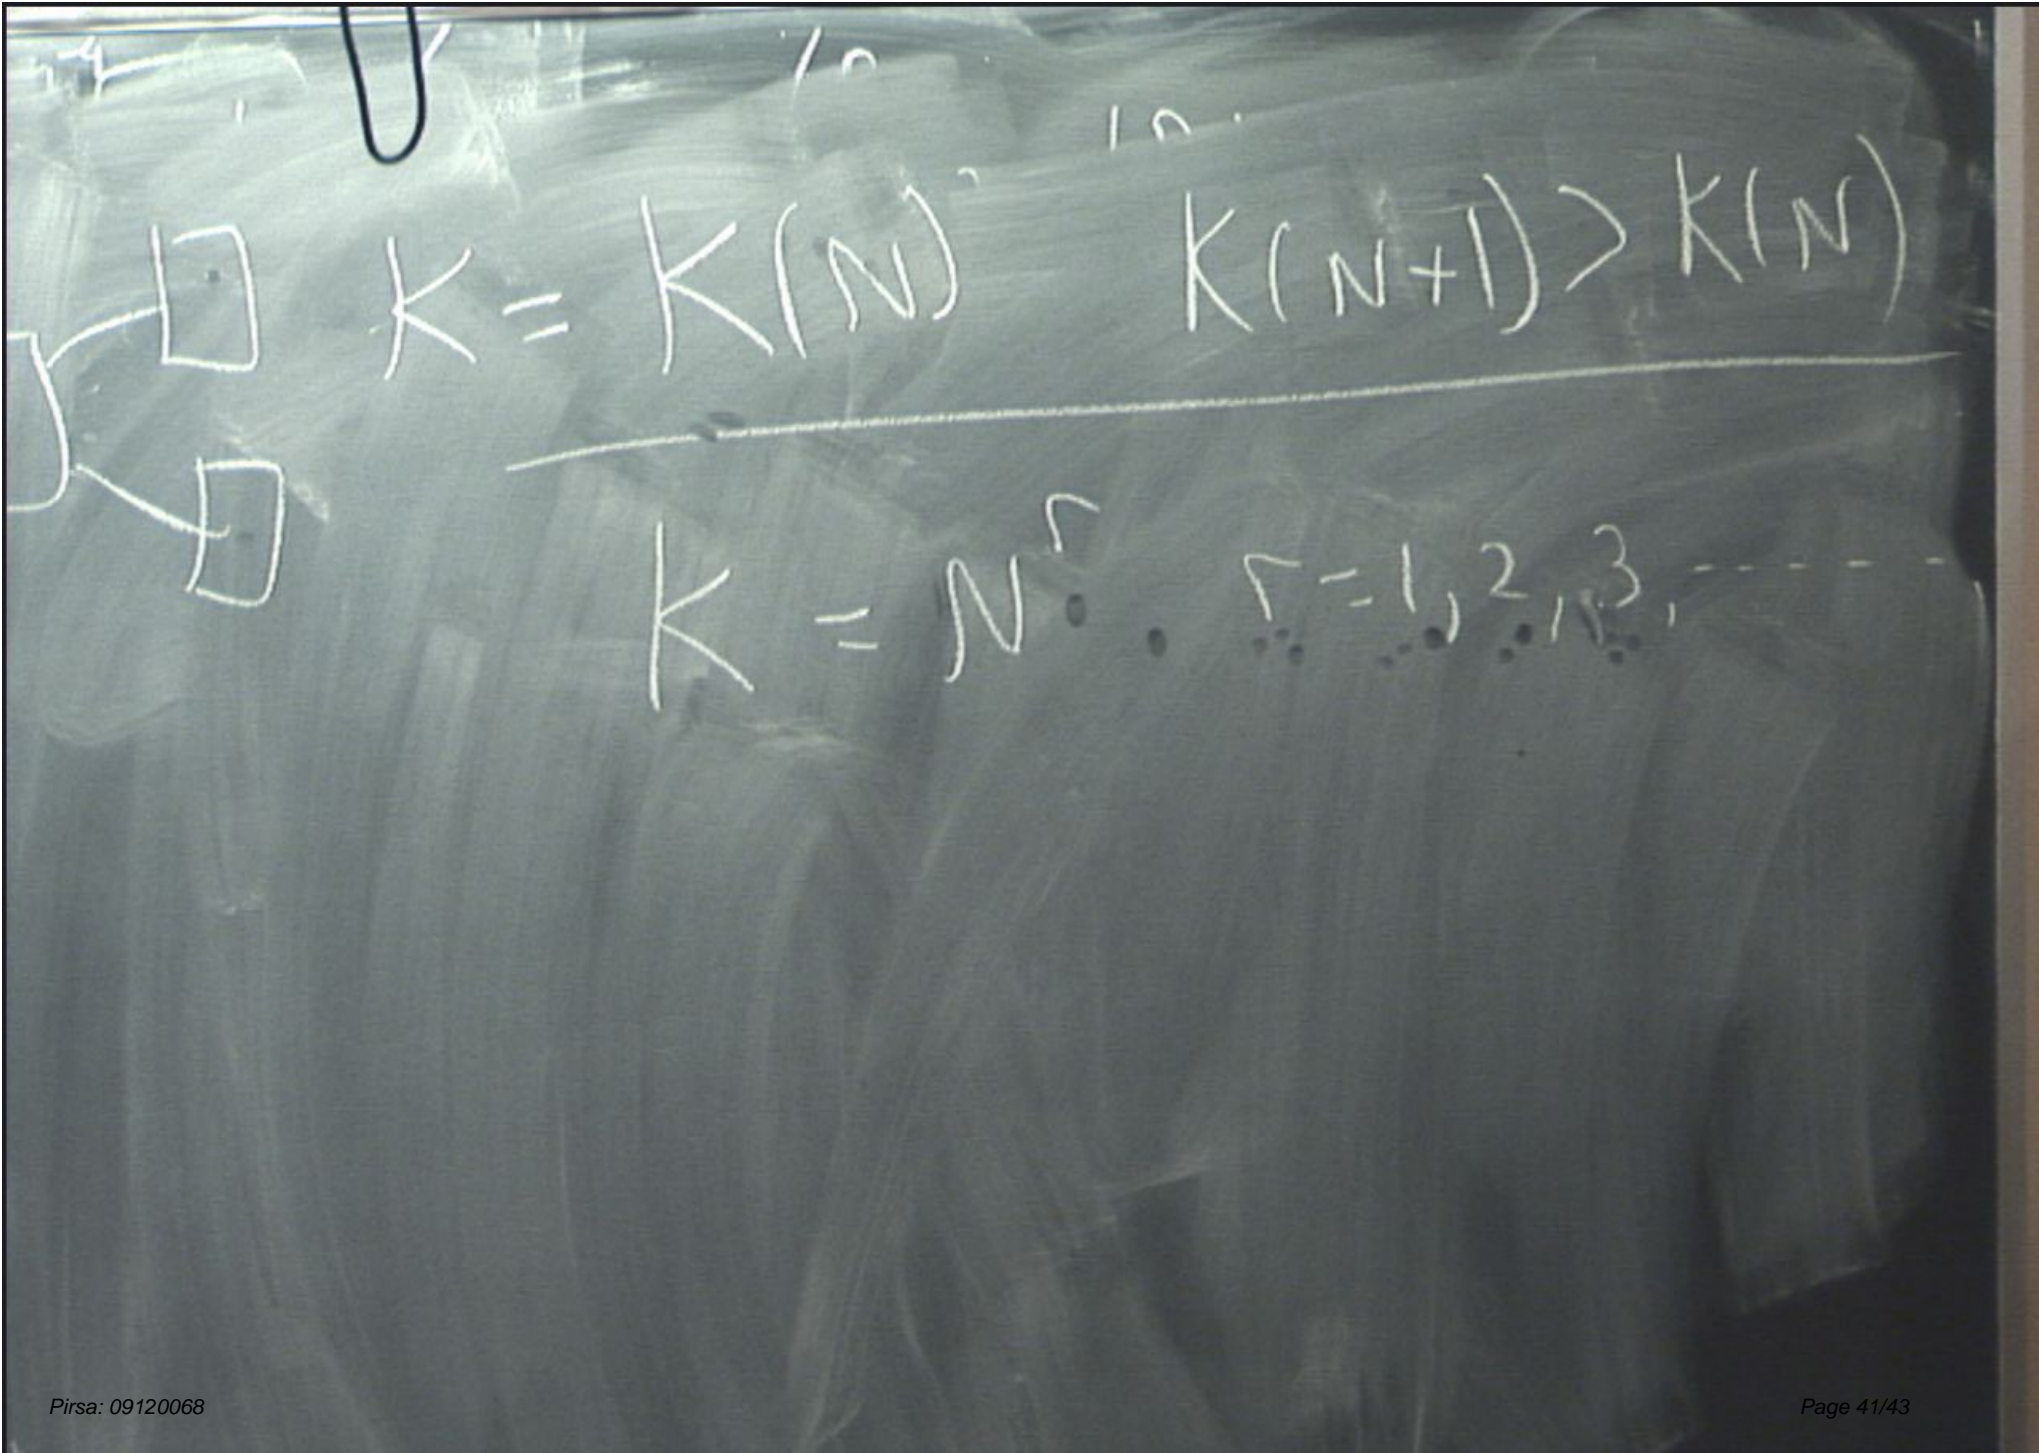 K = K(N) K(N+1) > K(N)
K = N^r r = 1, 2, 3, -----
Pirsa: 09120068
Page 41/43